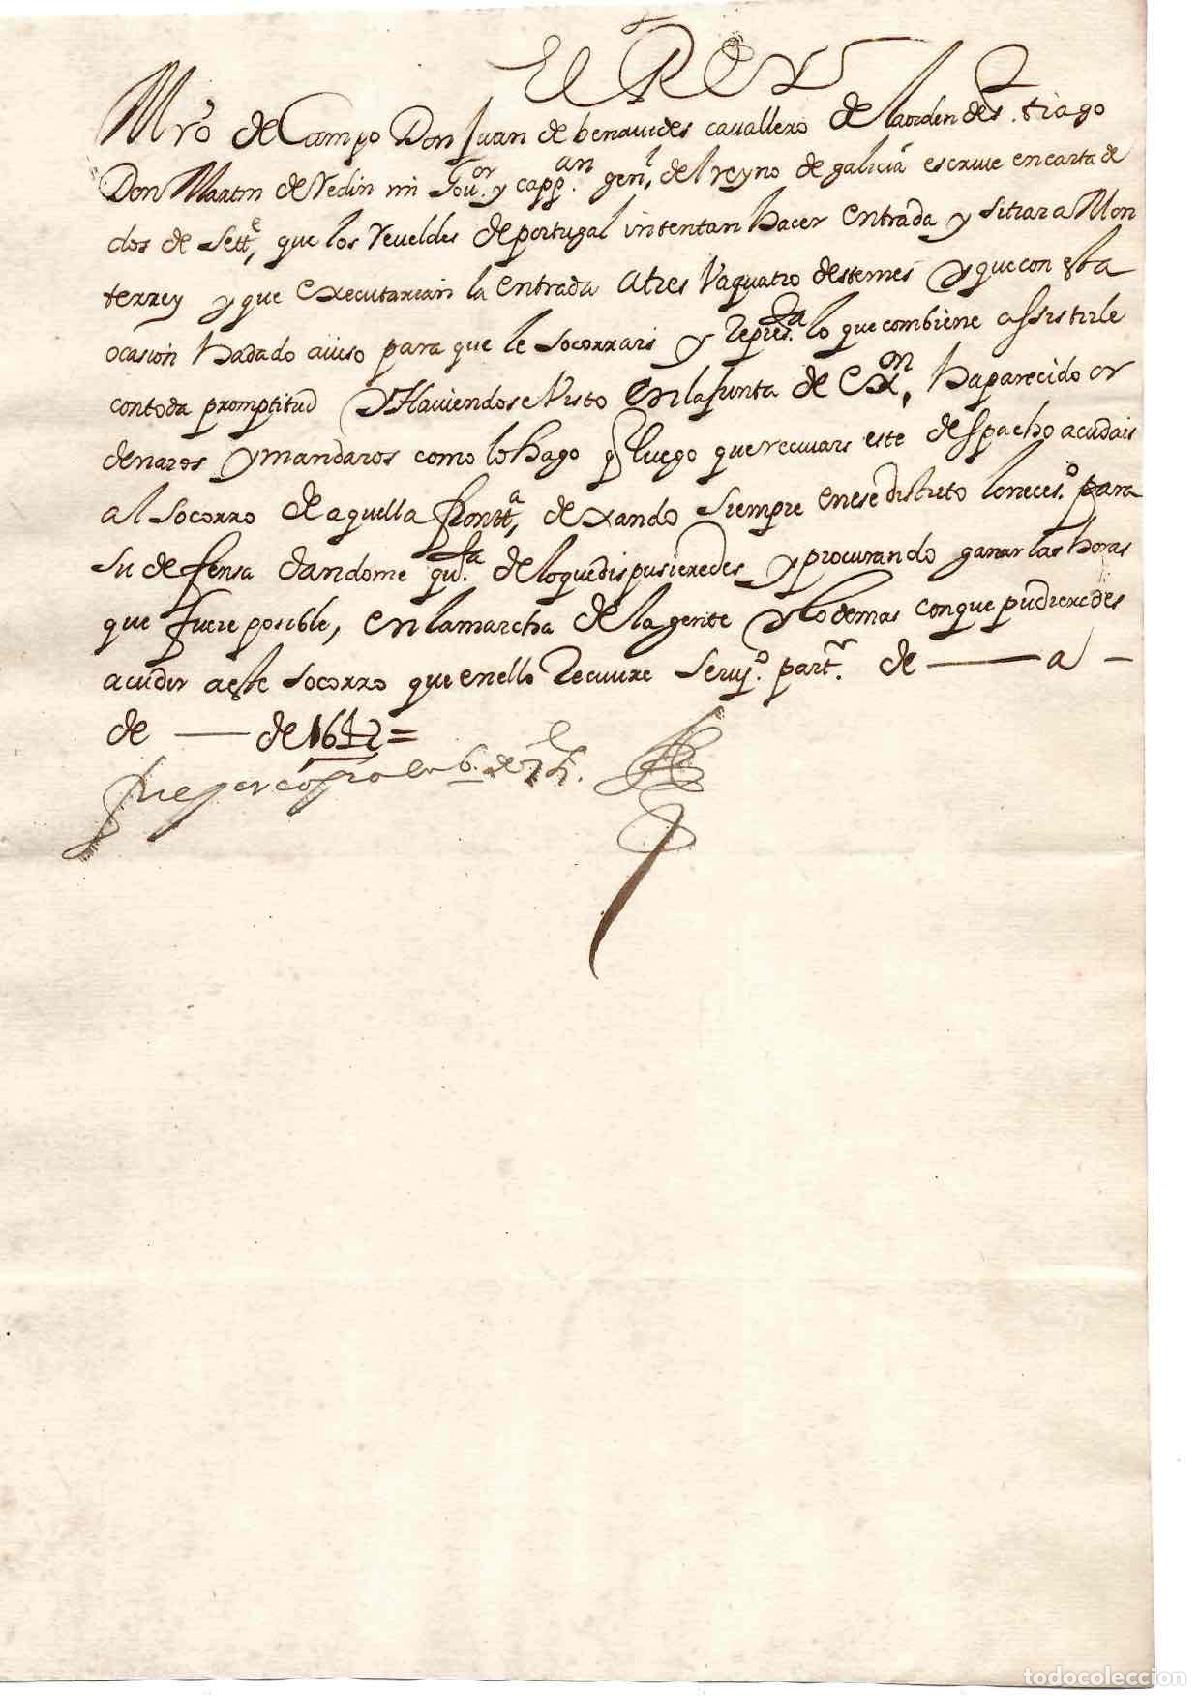 El Rey
Mro de Campo Don Juan de benauides cauallero de la orden de S. tiago
Don Martin de Redin mi Gouor. y cappan. genl. del reyno de galicia escriue en carta de
dos de Sette, que los reueldes de portugal intentan hacer entrada y sitiar a Mon
terrey y que executarian la entrada a tres ya quatro deste mes y que con esta
ocasion ha dado auiso para que le socorrais y represta. lo que combiene assistirle
con toda promptitud y Hauiendose Visto en la Junta de exn, ha parecido or
denaros y mandaros como lo hago q luego que reciuais este despacho acudais
al socorro de aquella frontta, dexando siempre en ese distrito lo neceso. para
su defensa dandome quta. de lo que dispusieredes y procurando ganar las horas
que fuere posible, en la marcha de la gente y lo demas con que pudieredes
acudir a este socorro que en ello reciuire seruyo. partr. de — a —
de — de 1642 =
fue por co gro en 6. de 7e.
todocoleccion